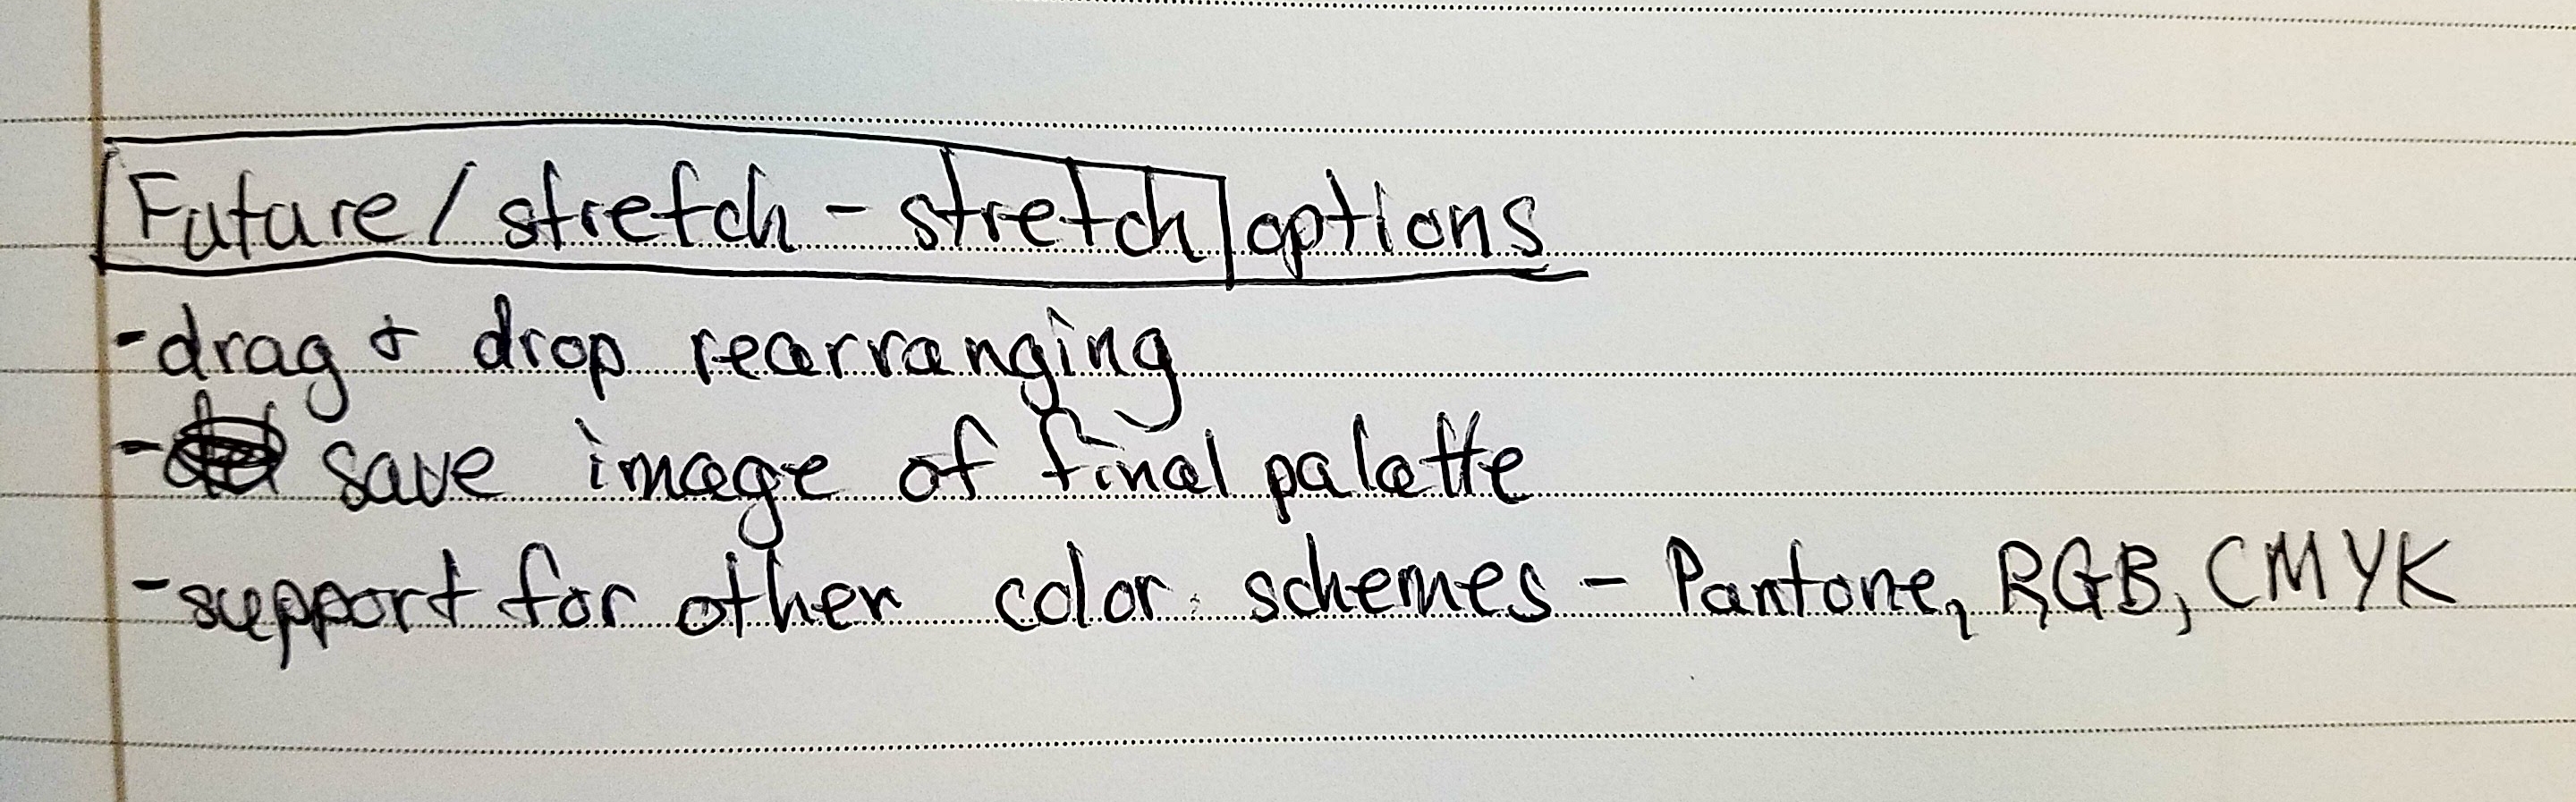 Future/stretch - stretch options
-drag & drop rearranging
- save image of final palette
-support for other color schemes - Pantone, RGB, CMYK